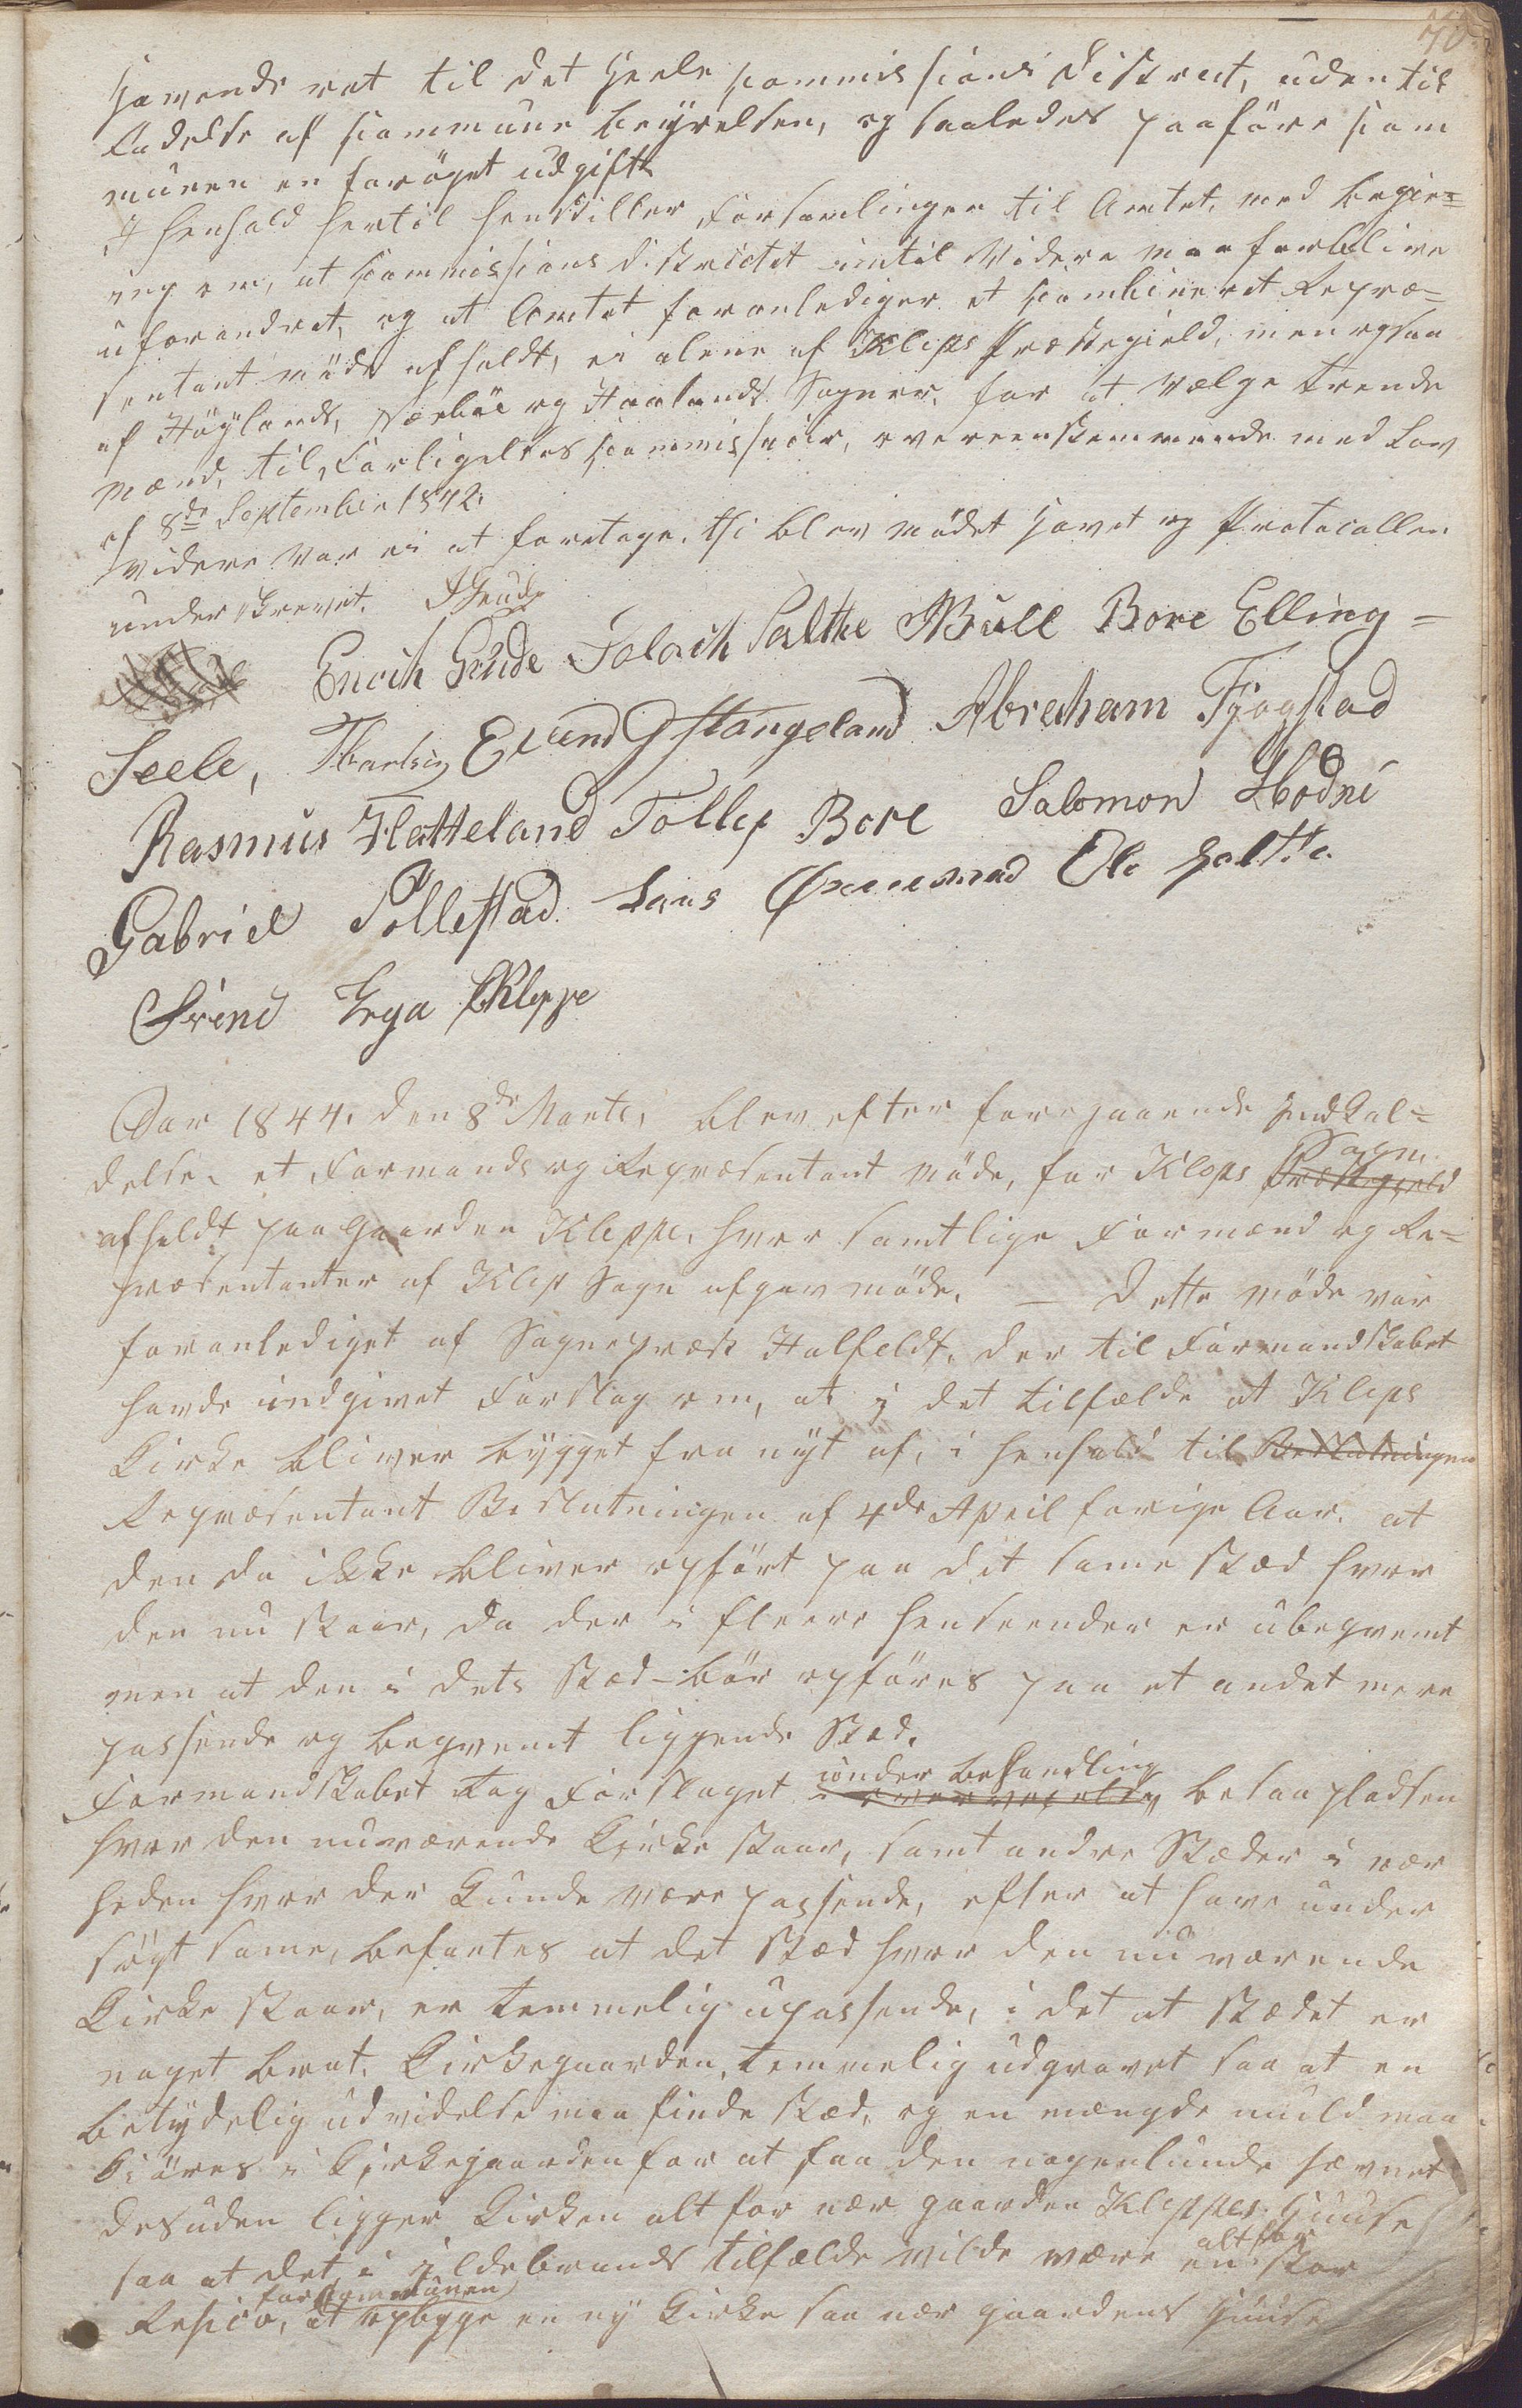 70.
havende ret til det heele Commissions Distrect, uden til
ladelse af Commune bestyrelsen, og saaledes paaføre Com
munen en forøget udgift
I Henhold hertil henstiller Forsamlingen til Amtet, med begiæ=
ring om, at Commissions Districtet indtil Videre maa forblive
uforandret, og at Amtet foranlediger et Combineret Repræ=
sentant møde afholdt, ei alene af Kleps Præstegield, men ogsaa
af Høylands, Nærböe og Haalands Sogner, for at vælge trende
Mænd, til Forligelses Commissair, overeenstemmende med Lov
af 8de September 1842.
Videre var ei at foretage, thi blev mødet hævet og Protocollen
underskrevet.
Enoch Grude Salthe Bull Bore Elling=
Seele, Eivind Stangeland Abraham Fjogstad
Rasmus Hatteland Tollef Bore Salomon Hodne
Gabriel Pollestad Lars Øxnevad Ole Salthe
Svend Erga Kleppe
Aar 1844. den 8de Marts, blev efter foregaaende Indkal=
delse, et Formands og Repræsentant Møde, for Kleps Sogn Præstegield
afholdt paa Gaarden Kleppe, hvor samtlige Formænd og Re=
præsentanter af Klep Sogn afgav møde. — Dette møde var
foranlediget af Sognepræst Halfeldt, der til Formandskabet
havde indgivet Forslag om, at i det tilfælde at Kleps
Kirke bliver bygget fra nyt af, i henhold til Beslutningen
Repræsentant Beslutningen af 4de April forige Aar. at
den da ikke bliver opført paa dit same stæd hvor
den nu staar, da der i fleere henseender er ubeqvemt
men at den i dets stæd bör opføres paa et andet mere
passende og beqvemt liggende Stæd.
Formandskabet tog Forslaget under behandling i overveielse, besaa pladsen
hvor den nuværende Kirke staar, samt andre Stæder i nær
heden hvor der kunde være passende, efter at have under
søgt same, befantes at det stæd hvor den nu værende
Kirke staar, er temmelig upassende, i det at stædet er
noget brat. Kirkegaarden, temmelig udgravet saa at en
betydelig udvidelse maa finde stæd, og en mængde muld maa
kiøres i Kirkegaarden for at faa den nogenlunde jævnet
desuden ligger Kirken alt for nær gaarden Kleppes Huuse
saa at det i ildebrands tilfælde vilde være en alt for stor
Resico, for Communen at opbygge en ny Kirke saa nær gaardens Huuse